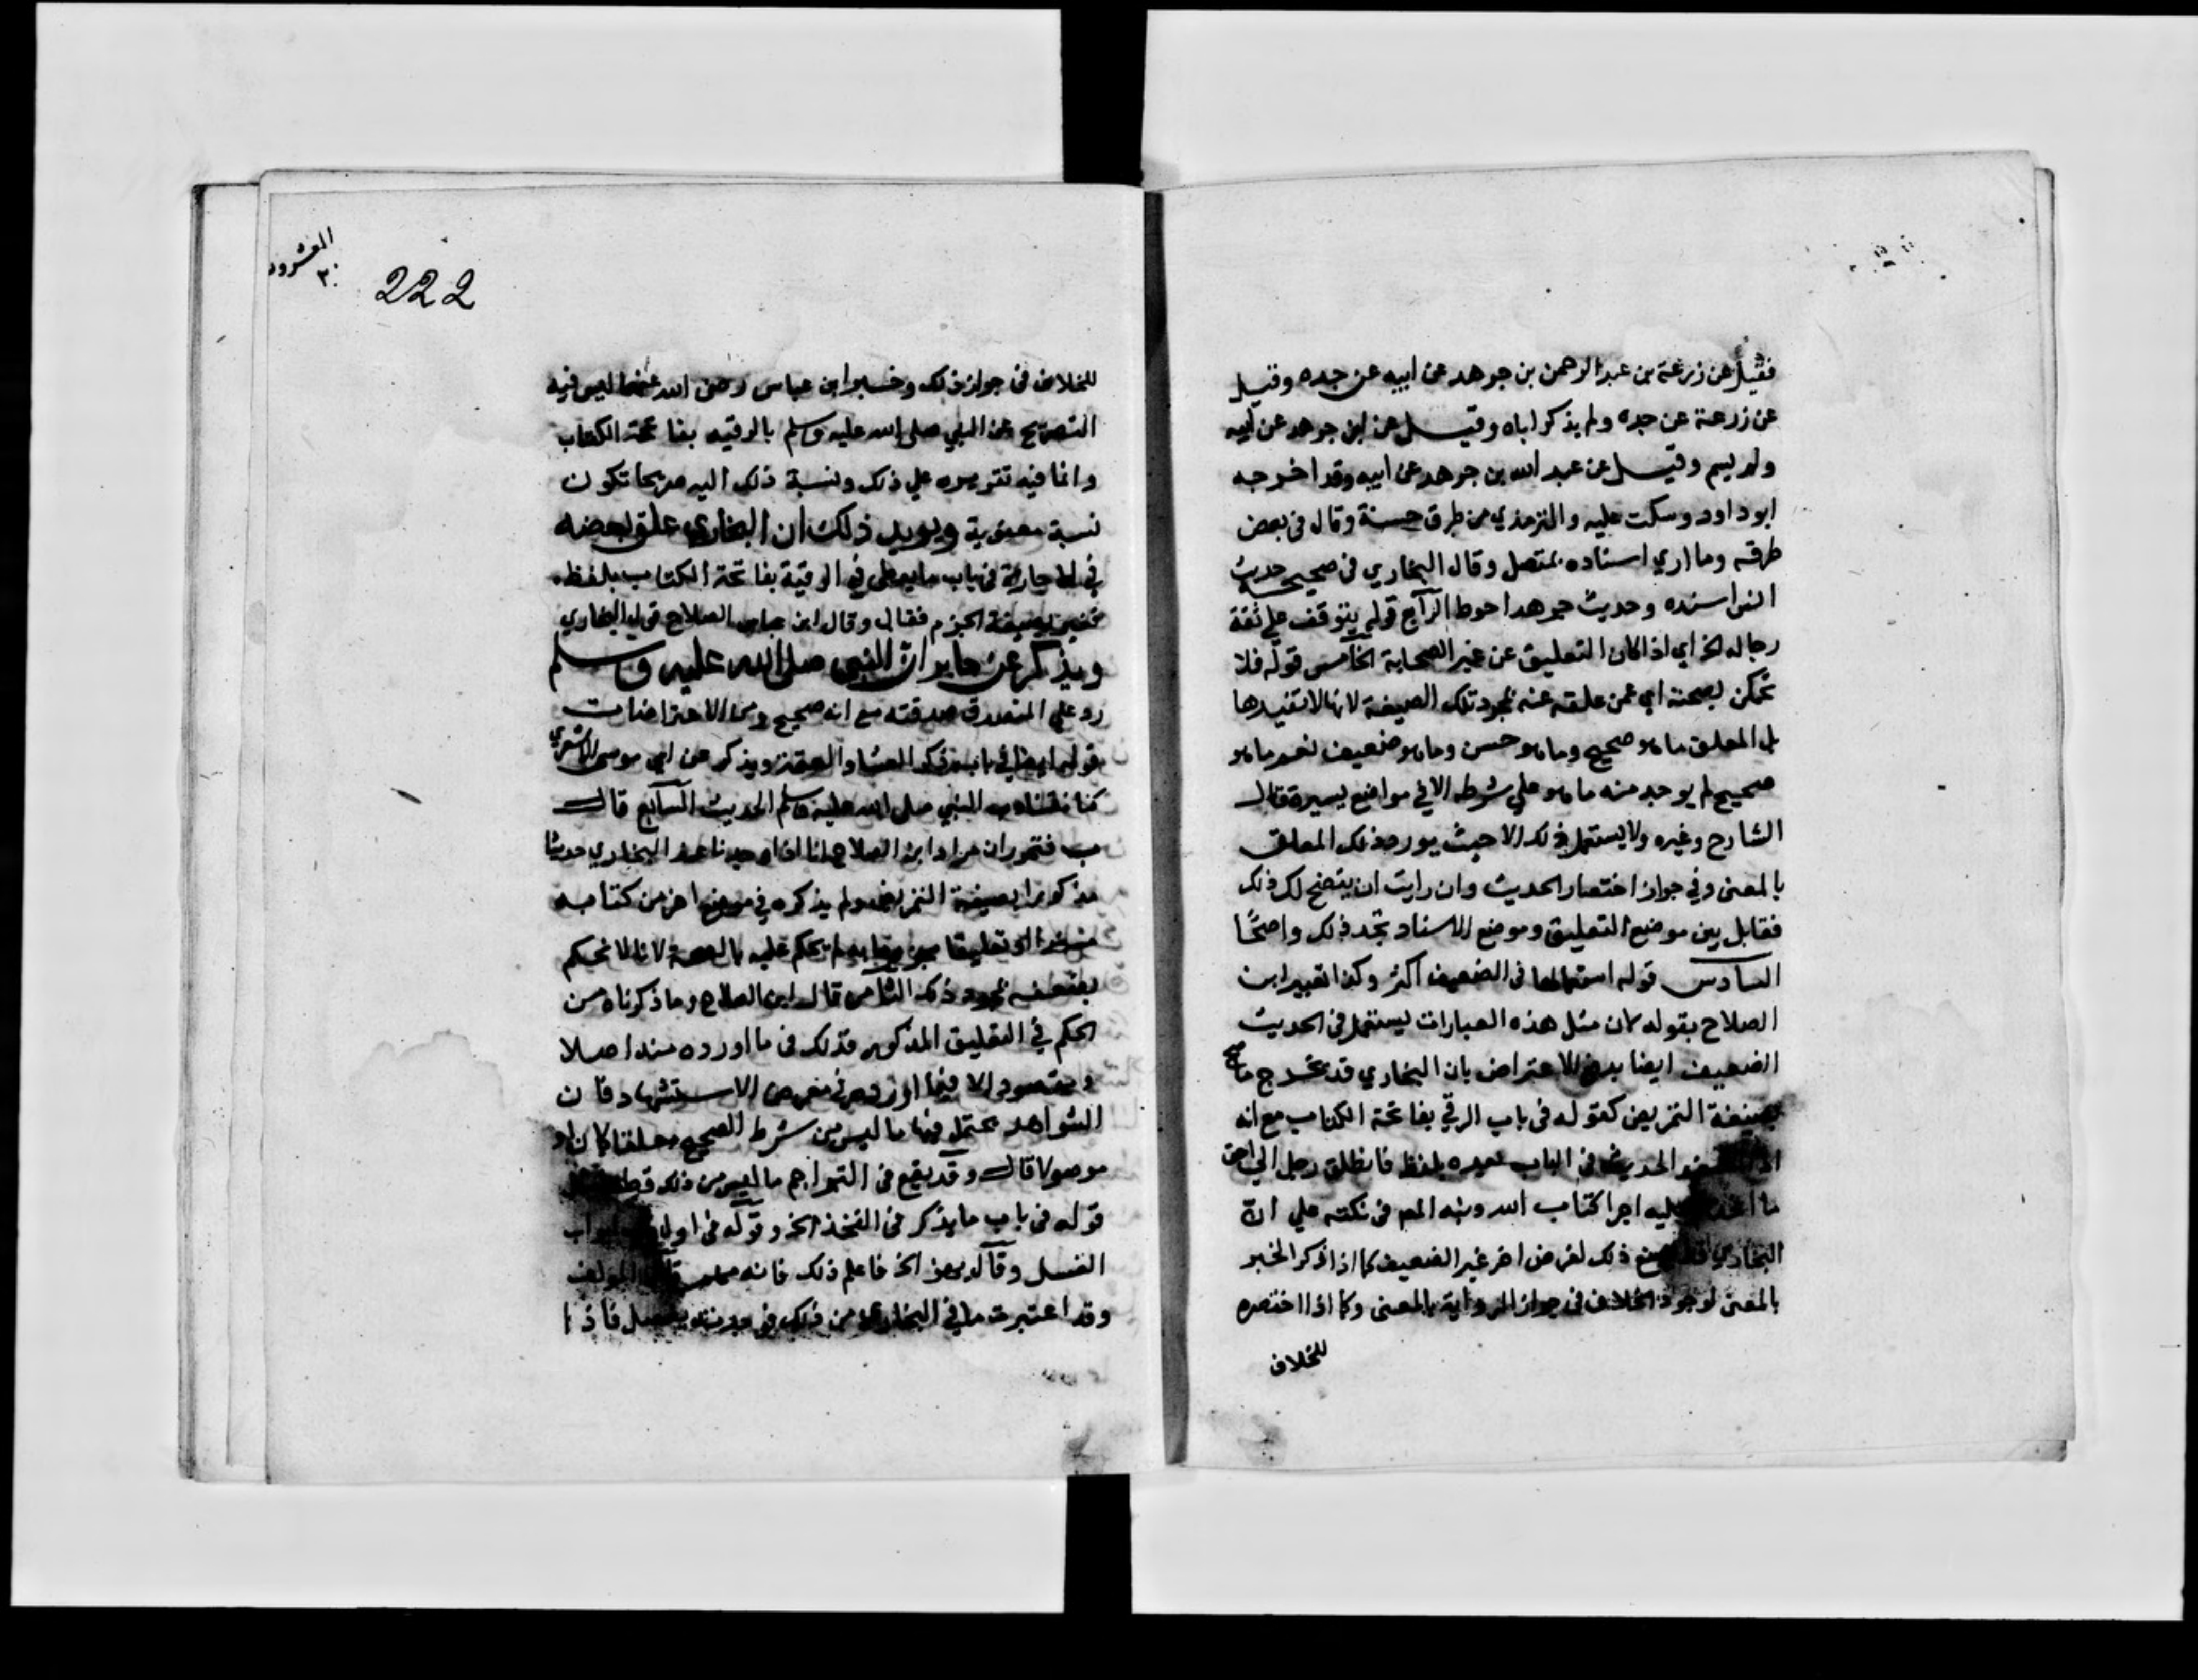 فقيل عن زرعة بن عبد الرحمن بن جرهد عن ابيه عن جده وقيل
عن زرعة عن جده ولم يذكر اباه وقيل عن ابن جرهد عن ابيه
ولم يسم وقيل عن عبد الله بن جرهد عن ابيه وقد اخرجه
ابو داود وسكت عليه والترمذي من طرق حسنة وقال في بعض
طرقه وما اري اسناده بمتصل وقال البخاري في صحيحه حديث
انس اسنده وحديث جرهد احوط الرابع قوله يتوقف علي ثقة
رجاله الخ اي اذا كان التعليق عن غير الصحابة الخامس قوله فلا
تحكن بصحته اي عمن علقه عنه بمجرد تلك الصيغة لانها لا تفيدها
بل المعلق ما هو صحيح وما هو حسن وما هو ضعيف نعم ما هو
صحيح لم يوجد منه ما هو علي شرطه الا في مواضع يسيرة قال
الشارح وغيره ولا يستعمل ذلك الا حيث يورد ذلك المعلق
بالمعنى وفي جواز اختصار الحديث وان رايت ان يتضح لك ذلك
فقابل بين موضع التعليق وموضع الاسناد تجد ذلك واضحًا
السادس قوله استعمالها في الضعيف اكثر وكذا تعبير ابن
الصلاح بقوله لان مثل هذه العبارات يستعمل في الحديث
الضعيف ايضا يدفع الاعتراض بان البخاري قد يخرج ما صح
بصيغة التمريض كقوله في باب الرقي بفاتحة الكتاب مع انه
الحديث في الباب بعيده بلفظ فانطلق رجل الي احق
ما عليه اجرا كتاب الله ونبه المم في نكته علي ان
البخاري ذلك لغرض اخر غير الضعيف كما اذا ذكر الخبر
بالمعنى لوجود الخلاف في جواز الرواية بالمعنى وكما اذا اختصره
للخلاف
العشرون
٢٠
222
للخلاف في جواز ذلك وخبر ابن عباس رضي الله عنهما ليس فيه
التصريح عن النبي صلى الله عليه وسلم بالرقيه بفاتحة الكتاب
وانما فيه تقريره علي ذلك ونسبة ذلك اليه صريحا تكون
نسبة معنوية ويويد ذلك ان البخاري علق بعضه
في الاجارة في باب ما يعطى في الرقية بفاتحة الكتاب بلفظه
بصيغة الجزم فقال وقال ابن عباس الصلاح قول البخاري
ويذكر عن جابر ان النبي صلى الله عليه وسلم
رد علي المتصدق صدقته مع انه صحيح ومن الاعتراضات
قوله ايضا في باب ذكر العشا والعتمة ويذكر عن ابي موسى الاشعري
كنا نتناوب النبي صلى الله عليه وسلم الحديث السابع قال
فتحرر ان مراد ابن الصلاح انا اذا وجدنا عند البخاري حديثا
مذكورا بصيغة التمريض ولم يذكره في موضع اخر من كتابه
مسندا او تعليقا مجزوما به لم نحكم عليه بالصحة لا انا نحكم
بضعفه بمجرد ذلك الثامن قال ابن الصلاح وما ذكرناه من
الحكم في التعليق المذكور فذلك في ما اورده منه اصلا
ومقصودا لا فيما اورده في معرض الاستشهاد فان
الشواهد يحتمل فيها ما ليس من شرط الصحيح معلقا كان او
موصولا قال وقد يقع في التراجم ما ليس من ذلك قطعا
قوله في باب ما يذكر في الفخذ الخ وقوله في اول
الغسل وقال بهز الخ فاعلم ذلك فانه مهم قال المولف
وقد اعتبرت ما في البخاري من ذلك فاذا